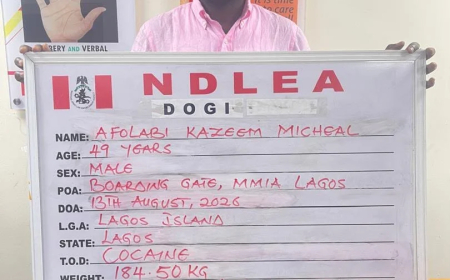 BERY AND VERBAL
to care
NDLEA
DOGI
NAME: AFOLABI KAZEEM MICHEAL
AGE: 49 YEARS
SEX: MALE
POA: BOARDING GATE, MMIA LAGOS
DOA: 13TH AUGUST, 2026
L.G.A: LAGOS ISLAND
STATE: LAGOS
T.O.D: COCAINE
WEIGHT: 184.50KG